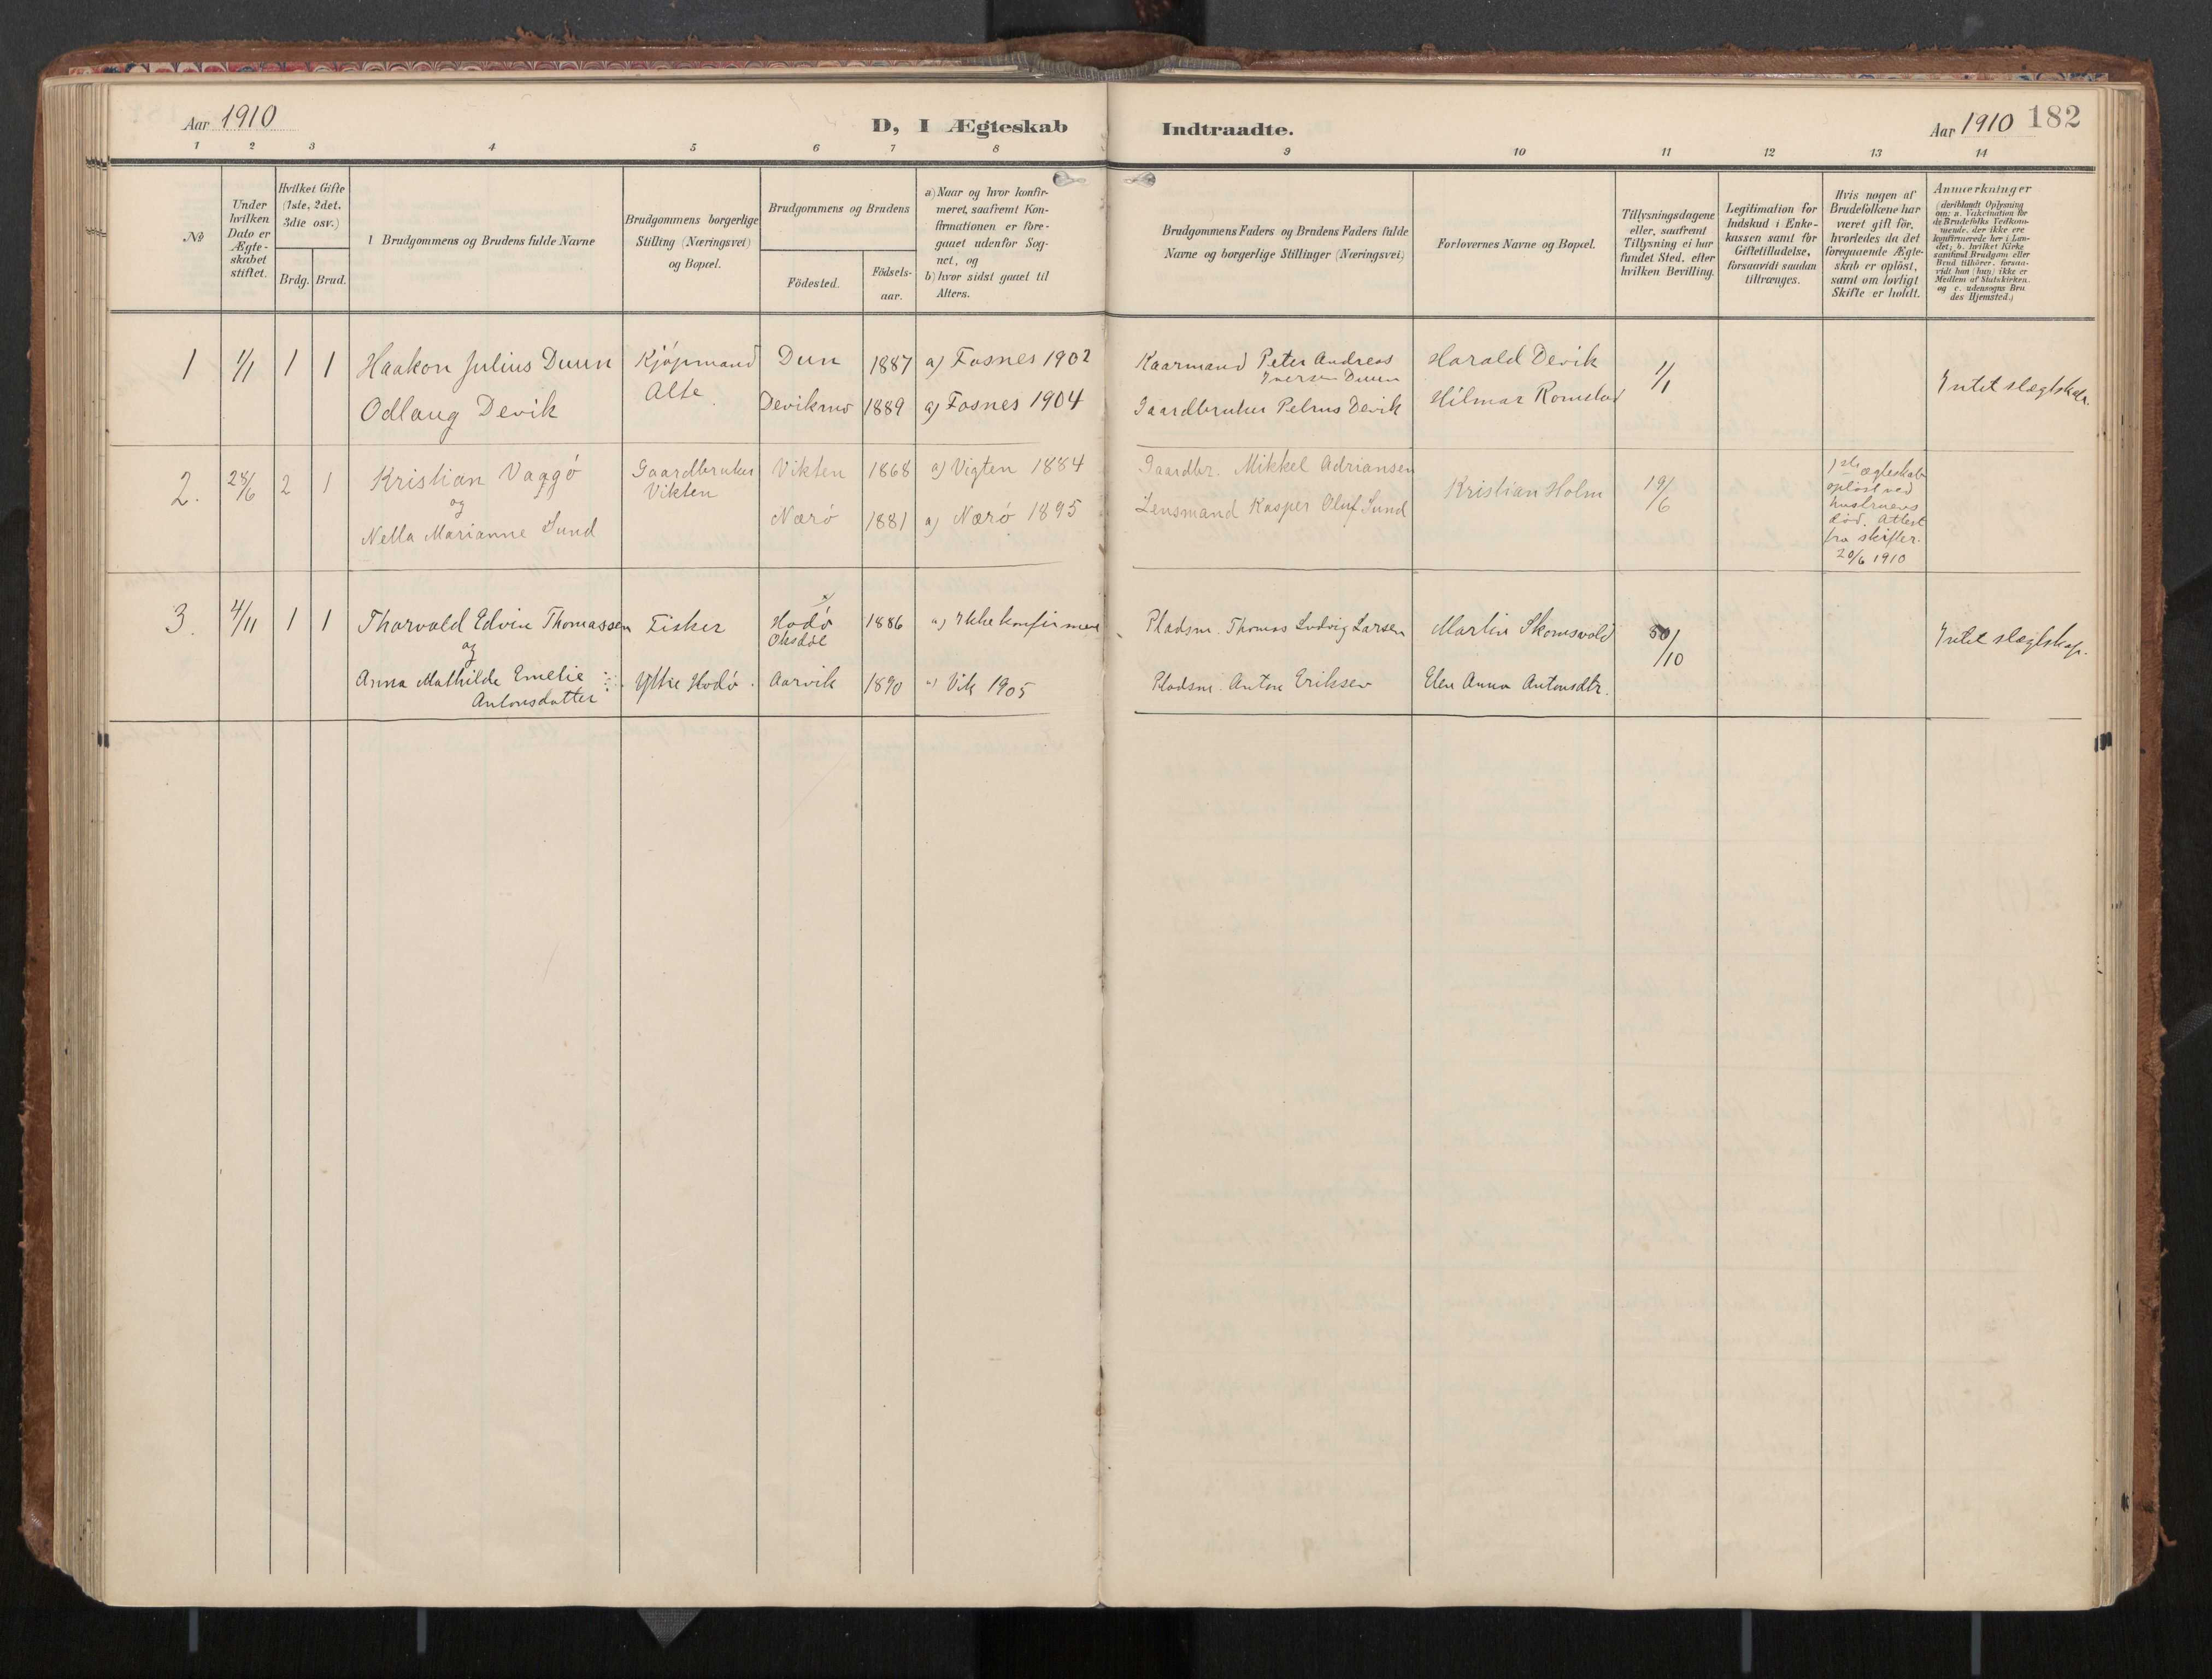 Aar 1910
D, I Ægteskab Indtraadte.
Aar 1910 182
1 2 3 4 5 6 7 8 9 10 11 12 13 14
No
Under
hvilken
Dato er
Ægte-
skabet
stiftet.
Hvilket Gifte
(1ste, 2det,
3die osv.)
Brdg. Brud.
Brudgommens og Brudens fulde Navne
Brudgommens borgerlige
Stilling (Næringsvei)
og Bopæl.
Brudgommens og Brudens
Födested.
Födsels-
aar.
a) Naar og hvor konfir-
meret, saafremt Kon-
firmationen er fore-
gaaet udenfor Sog-
net, og
b) hvor sidst gaaet til
Alters.
Brudgommens Faders og Brudens Faders fulde
Navne og borgerlige Stillinger (Næringsvei)
Forlovernes Navne og Bopæl.
Tillysningsdagene
eller, saafremt
Tillysning ei har
fundet Sted, efter
hvilken Bevilling.
Legitimation for
Indskud i Enke-
kassen samt for
Giftetilladelse,
forsaavidt saadan
tiltrænges.
Hvis nogen af
Brudefolkene har
været gift för,
hvorledes da det
foregaaende Ægte-
skab er oplöst,
samt om lovligt
Skifte er holdt.
Anmærkninger
(deriblandt Oplysning
om: a. Vakcination for
de Brudefolks Vedkom-
mende, der ikke ere
konfirmerede her i Lan-
det; b. hvilket Kirke-
samfund Brudgom eller
Brud tilhörer, forsaa-
vidt han (hun) ikke er
Medlem af Statskirken.
og c. udensogns Bru
des Hjemsted.)
1 1/1 1 1 Haakon Julius Duun Kjøpmand Dun 1887 a) Fosnes 1902 Kaarmand Peter Andreas Harald Devik 1/1 Intet slægtskap.
Iversen Duun
Odlaug Devik Alte Deviknes 1889 a) Fosnes 1904 Gaardbruker Petrus Devik Hilmar Romstad
2. 28/6 2 1 Kristian Vaggø Gaardbruker Vikten 1868 a) Vigten 1884 Gaardbr. Mikkel Adriansen Kristian Holm 19/6
og Vikten
Nella Marianne Sund Nærø 1881 a) Nærø 1895 Lensmand Kasper Oluf Sund
1ste ægteskab
opløst ved
hustruens
død. Attest
fra skifter.
20/6 1910
3. 4/11 1 1 Thorvald Edvin Thomassen Fisker Hodø 1886 a) Ikke konfirmert Pladsm. Thomas Ludvig Larsen Martin Skomsvold 30/10 Intet slægtskap.
og Oksdøl
Anna Mathilde Emelie Yttre Hodø. Aarvik 1890 a) Vik 1905 Pladsm. Anton Eriksen Elen Anna Antonsdtr.
Antonsdatter